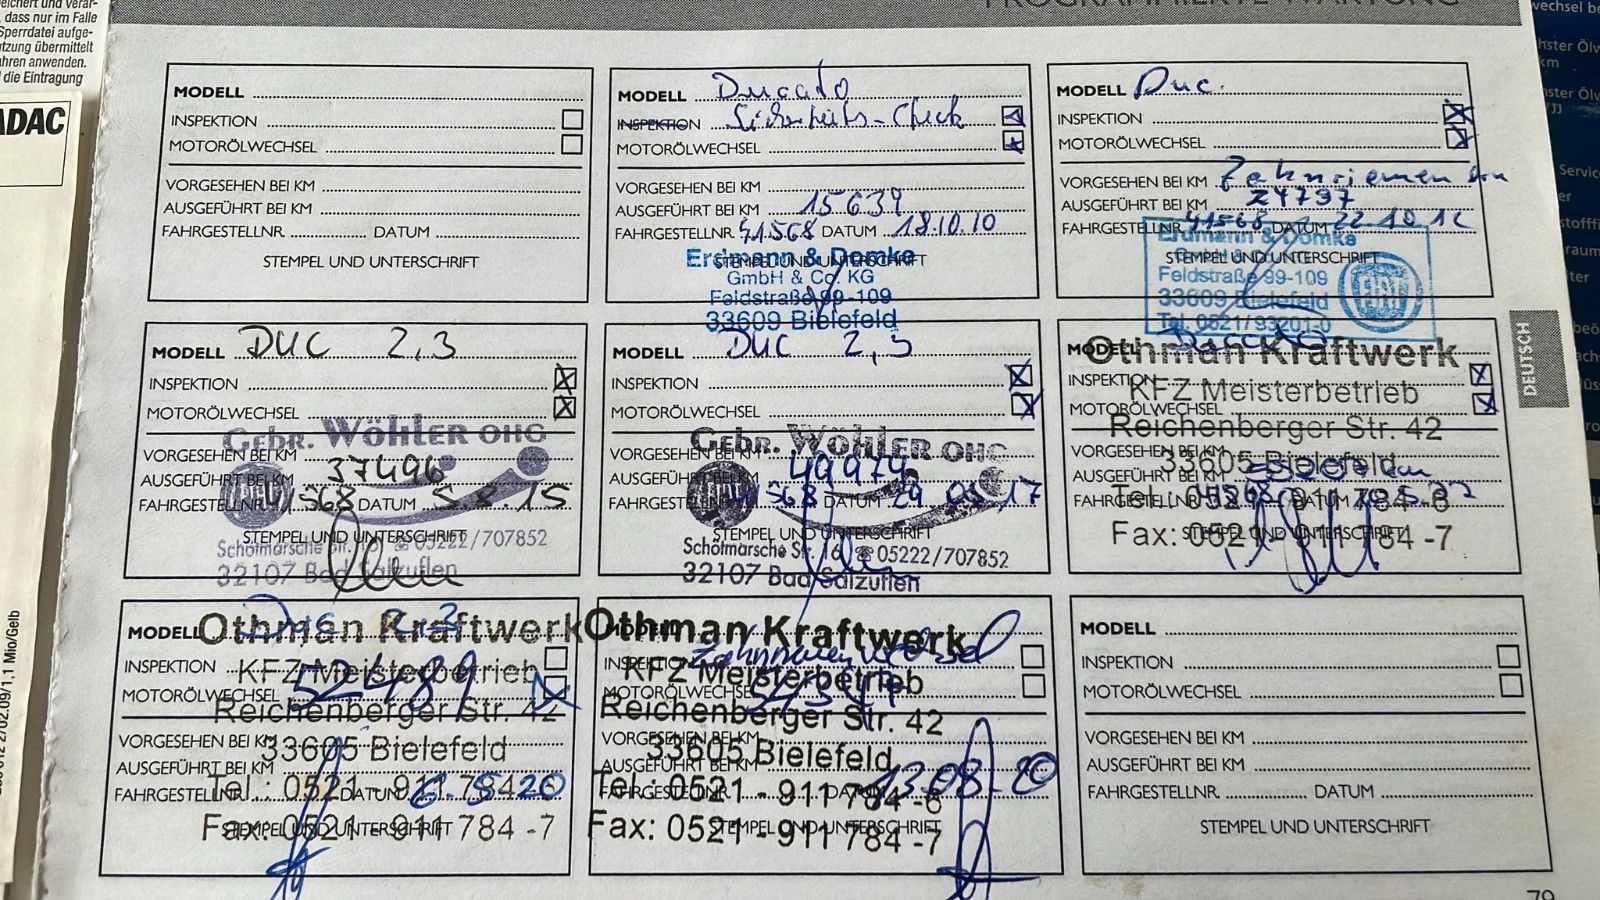 PROGRAMMIERTE WARTUNG
dass nur im Falle
Sperrdatei aufge-
übermittelt
anwenden.
die Eintragung
ADAC
MODELL
INSPEKTION
MOTORÖLWECHSEL
VORGESEHEN BEI KM
AUSGEFÜHRT BEI KM
FAHRGESTELLNR. DATUM
STEMPEL UND UNTERSCHRIFT
MODELL Ducato
INSPEKTION Sicherheits-Check
MOTORÖLWECHSEL
VORGESEHEN BEI KM
AUSGEFÜHRT BEI KM 15639
FAHRGESTELLNR. 41568 DATUM 18.10.10
STEMPEL UND UNTERSCHRIFT
Erdmann & Domke
GmbH & Co. KG
Feldstraße 99-109
33609 Bielefeld
MODELL Duc.
INSPEKTION
MOTORÖLWECHSEL
VORGESEHEN BEI KM Zahnriemen
AUSGEFÜHRT BEI KM 24797
FAHRGESTELLNR. 41568 DATUM 22.10.12
STEMPEL UND UNTERSCHRIFT
Erdmann & Domke
Feldstraße 99-109
33609 Bielefeld
Tel. 0521/93201-0
FIAT
MODELL DUC 2,3
INSPEKTION
MOTORÖLWECHSEL
VORGESEHEN BEI KM
AUSGEFÜHRT BEI KM 37496
FAHRGESTELLNR. 41568 DATUM 5.8.15
STEMPEL UND UNTERSCHRIFT
Gebr. Wöhler OHG
Schötmarsche Str. 16 ☎ 05222/707852
32107 Bad Salzuflen
MODELL DUC 2,3
INSPEKTION
MOTORÖLWECHSEL
VORGESEHEN BEI KM
AUSGEFÜHRT BEI KM 49974
FAHRGESTELLNR. 41568 DATUM 29 17
STEMPEL UND UNTERSCHRIFT
Gebr. Wöhler OHG
Schötmarsche Str. 16 ☎ 05222/707852
32107 Bad Salzuflen
MODELL Ducato
INSPEKTION
MOTORÖLWECHSEL
VORGESEHEN BEI KM
AUSGEFÜHRT BEI KM
FAHRGESTELLNR. DATUM
STEMPEL UND UNTERSCHRIFT
Othman Kraftwerk
KFZ Meisterbetrieb
Reichenberger Str. 42
33605 Bielefeld
Tel.: 0521 - 911 784 -6
Fax: 0521 - 911 784 -7
DEUTSCH
MODELL Duc 2.3
INSPEKTION
MOTORÖLWECHSEL 52489
VORGESEHEN BEI KM
AUSGEFÜHRT BEI KM
FAHRGESTELLNR. DATUM 6.5.20
STEMPEL UND UNTERSCHRIFT
Othman Kraftwerk
KFZ Meisterbetrieb
Reichenberger Str. 42
33605 Bielefeld
Tel.: 0521 - 911 784 -6
Fax: 0521 - 911 784 -7
MODELL
INSPEKTION Zahnriemenwechsel
MOTORÖLWECHSEL
VORGESEHEN BEI KM
AUSGEFÜHRT BEI KM
FAHRGESTELLNR. DATUM 13.08.20
STEMPEL UND UNTERSCHRIFT
Othman Kraftwerk
KFZ Meisterbetrieb
Reichenberger Str. 42
33605 Bielefeld
Tel.: 0521 - 911 784 -6
Fax: 0521 - 911 784 -7
MODELL
INSPEKTION
MOTORÖLWECHSEL
VORGESEHEN BEI KM
AUSGEFÜHRT BEI KM
FAHRGESTELLNR. DATUM
STEMPEL UND UNTERSCHRIFT
79